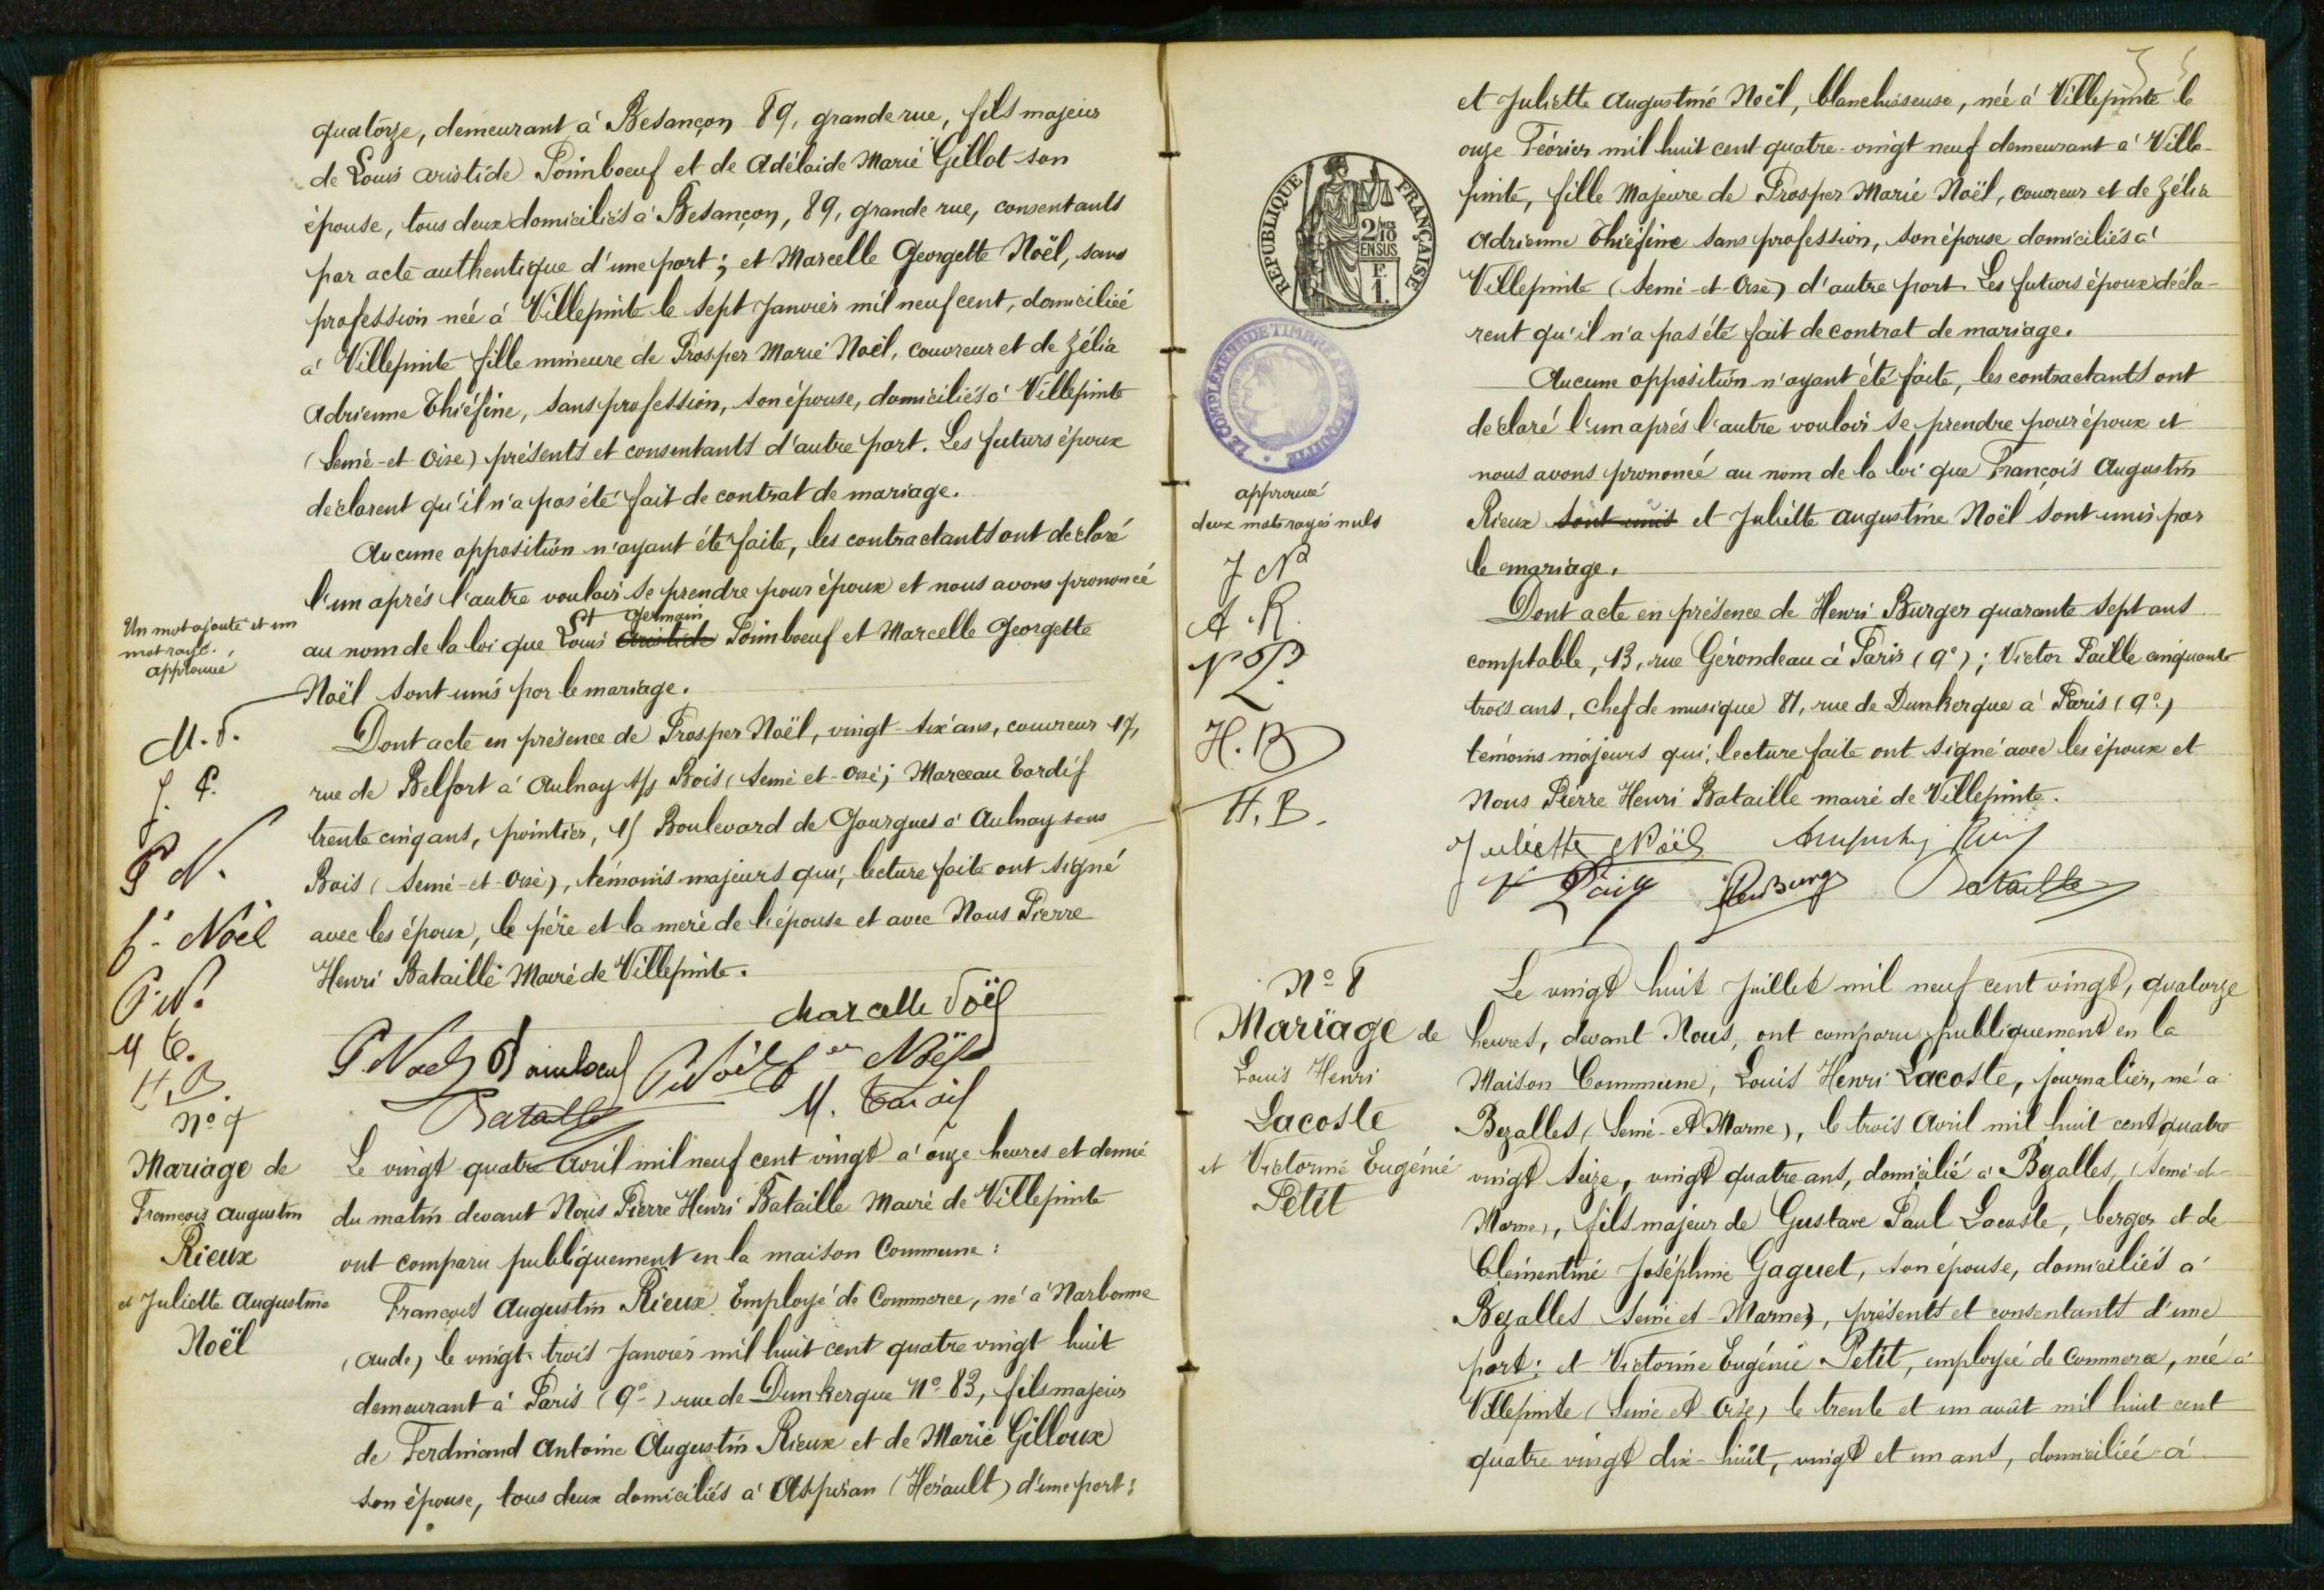 quatorze, demeurant à Besançon 89, grande rue, fils majeur
de Louis Aristide Poimboeuf et de Adélaide Marie Gillot son
épouse, tous deux domiciliés à Besançon, 89, grande rue, consentants
par acte authentique d'une part ; et Marcelle Georgette Noël, sans
profession née à Villepinte le sept Janvier mil neuf cent, domiciliée
à Villepinte fille mineure de Prosper Marie Noël, couvreur et de Zélia
Adrienne Thiéfine, sans profession, son épouse, domiciliés à Villepinte
(Seine-et-Oise) présents et consentants d'autre part. Les futurs époux
déclarent qu'il n'a pas été fait de contrat de mariage.
Aucune opposition n'ayant été faite, les contractants ont déclaré
l'un après l'autre vouloir se prendre pour époux et nous avons prononcé
Un mot ajouté et un
mot rayé.
approuvé
St Germain
au nom de la loi que Louis Aristide Poimboeuf et Marcelle Georgette
Noël sont unis par le mariage.
Dont acte en présence de Prosper Noël, vingt-six ans, couvreur 17,
rue de Belfort à Aulnay s/s Bois (Seine et-Oise; Marceau Tardif
trente cinq ans, pointier, 15 Boulevard de Gourgues à Aulnay sous
Bois (Seine-et-Oise), témoins majeurs qui, lecture faite ont signé
avec les époux, le père et la mère de l'épouse et avec Nous Pierre
Henri Bataille Maire de Villepinte.
P N.
Noël
P. N.
M T.
H. B.
Marcelle Noël
P Noël Poimboeuf P Noël Noël
Bataille M. Tardif
No 7
Mariage de
François Augustin
Rieux
et Juliette Augustine
Noël
Le vingt quatre Avril mil neuf cent vingt à onze heures et demie
du matin devant Nous Pierre Henri Bataille Maire de Villepinte
ont comparu publiquement en la maison Commune :
François Augustin Rieux Employé de Commerce, né à Narbonne
(Aude) le vingt-trois Janvier mil huit cent quatre vingt huit
demeurant à Paris (9e) rue de Dunkerque No 83, fils majeur
de Ferdinand Antoine Augustin Rieux et de Marie Gilloux
son épouse, tous deux domiciliés à Aspiran (Hérault) d'une part :
et Juliette Augustine Noël, blanchisseuse, née à Villepinte le
onze Février mil huit cent quatre-vingt neuf demeurant à Ville-
pinte, fille Majeure de Prosper Marie Noël, couvreur et de Zélia
Adrienne Thiéfine sans profession, son épouse domiciliés à
Villepinte (Seine-et-Oise) d'autre part. Les futurs époux décla-
rent qu'il n'a pas été fait de contrat de mariage.
REPUBLIQUE FRANÇAISE
2/10
EN SUS
F.
1.
Aucune opposition n'ayant été faite, les contractants ont
déclaré l'un après l'autre vouloir se prendre pour époux et
nous avons prononcé au nom de la loi que François Augustin
Rieux sont unis et Juliette Augustine Noël sont unis par
le mariage.
approuvé
deux mots rayés nuls
J N
A. R.
H. B
H. B.
Dont acte en présence de Henri Burger quarante sept ans
comptable, 13, rue Gérondeau à Paris (9e) ; Victor Paille cinquante
trois ans, chef de musique 81, rue de Dunkerque à Paris (9e)
témoins majeurs qui, lecture faite ont signé avec les époux et
Nous Pierre Henri Bataille maire de Villepinte.
Juliette Noël
Bataille
No 8
Mariage de
Louis Henri
Lacoste
et Victorine Eugénie
Petit
Le vingt huit Juillet mil neuf cent vingt, quatorze
heures, devant Nous, ont comparu publiquement en la
Maison Commune, Louis Henri Lacoste, journalier, né à
Bezalles (Seine-et-Marne), le trois Avril mil huit cent quatre
vingt seize, vingt quatre ans, domicilié à Bezalles, (Seine-et-
Marne), fils majeur de Gustave Paul Lacoste, berger et de
Clémentine Joséphine Gaguet, son épouse, domiciliés à
Bezalles Seine et-Marne), présents et consentants d'une
part ; et Victorine Eugénie Petit, employée de Commerce, née à
Villepinte (Seine et Oise) le trente et un août mil huit cent
quatre vingt dix-huit, vingt et un ans, domiciliée à